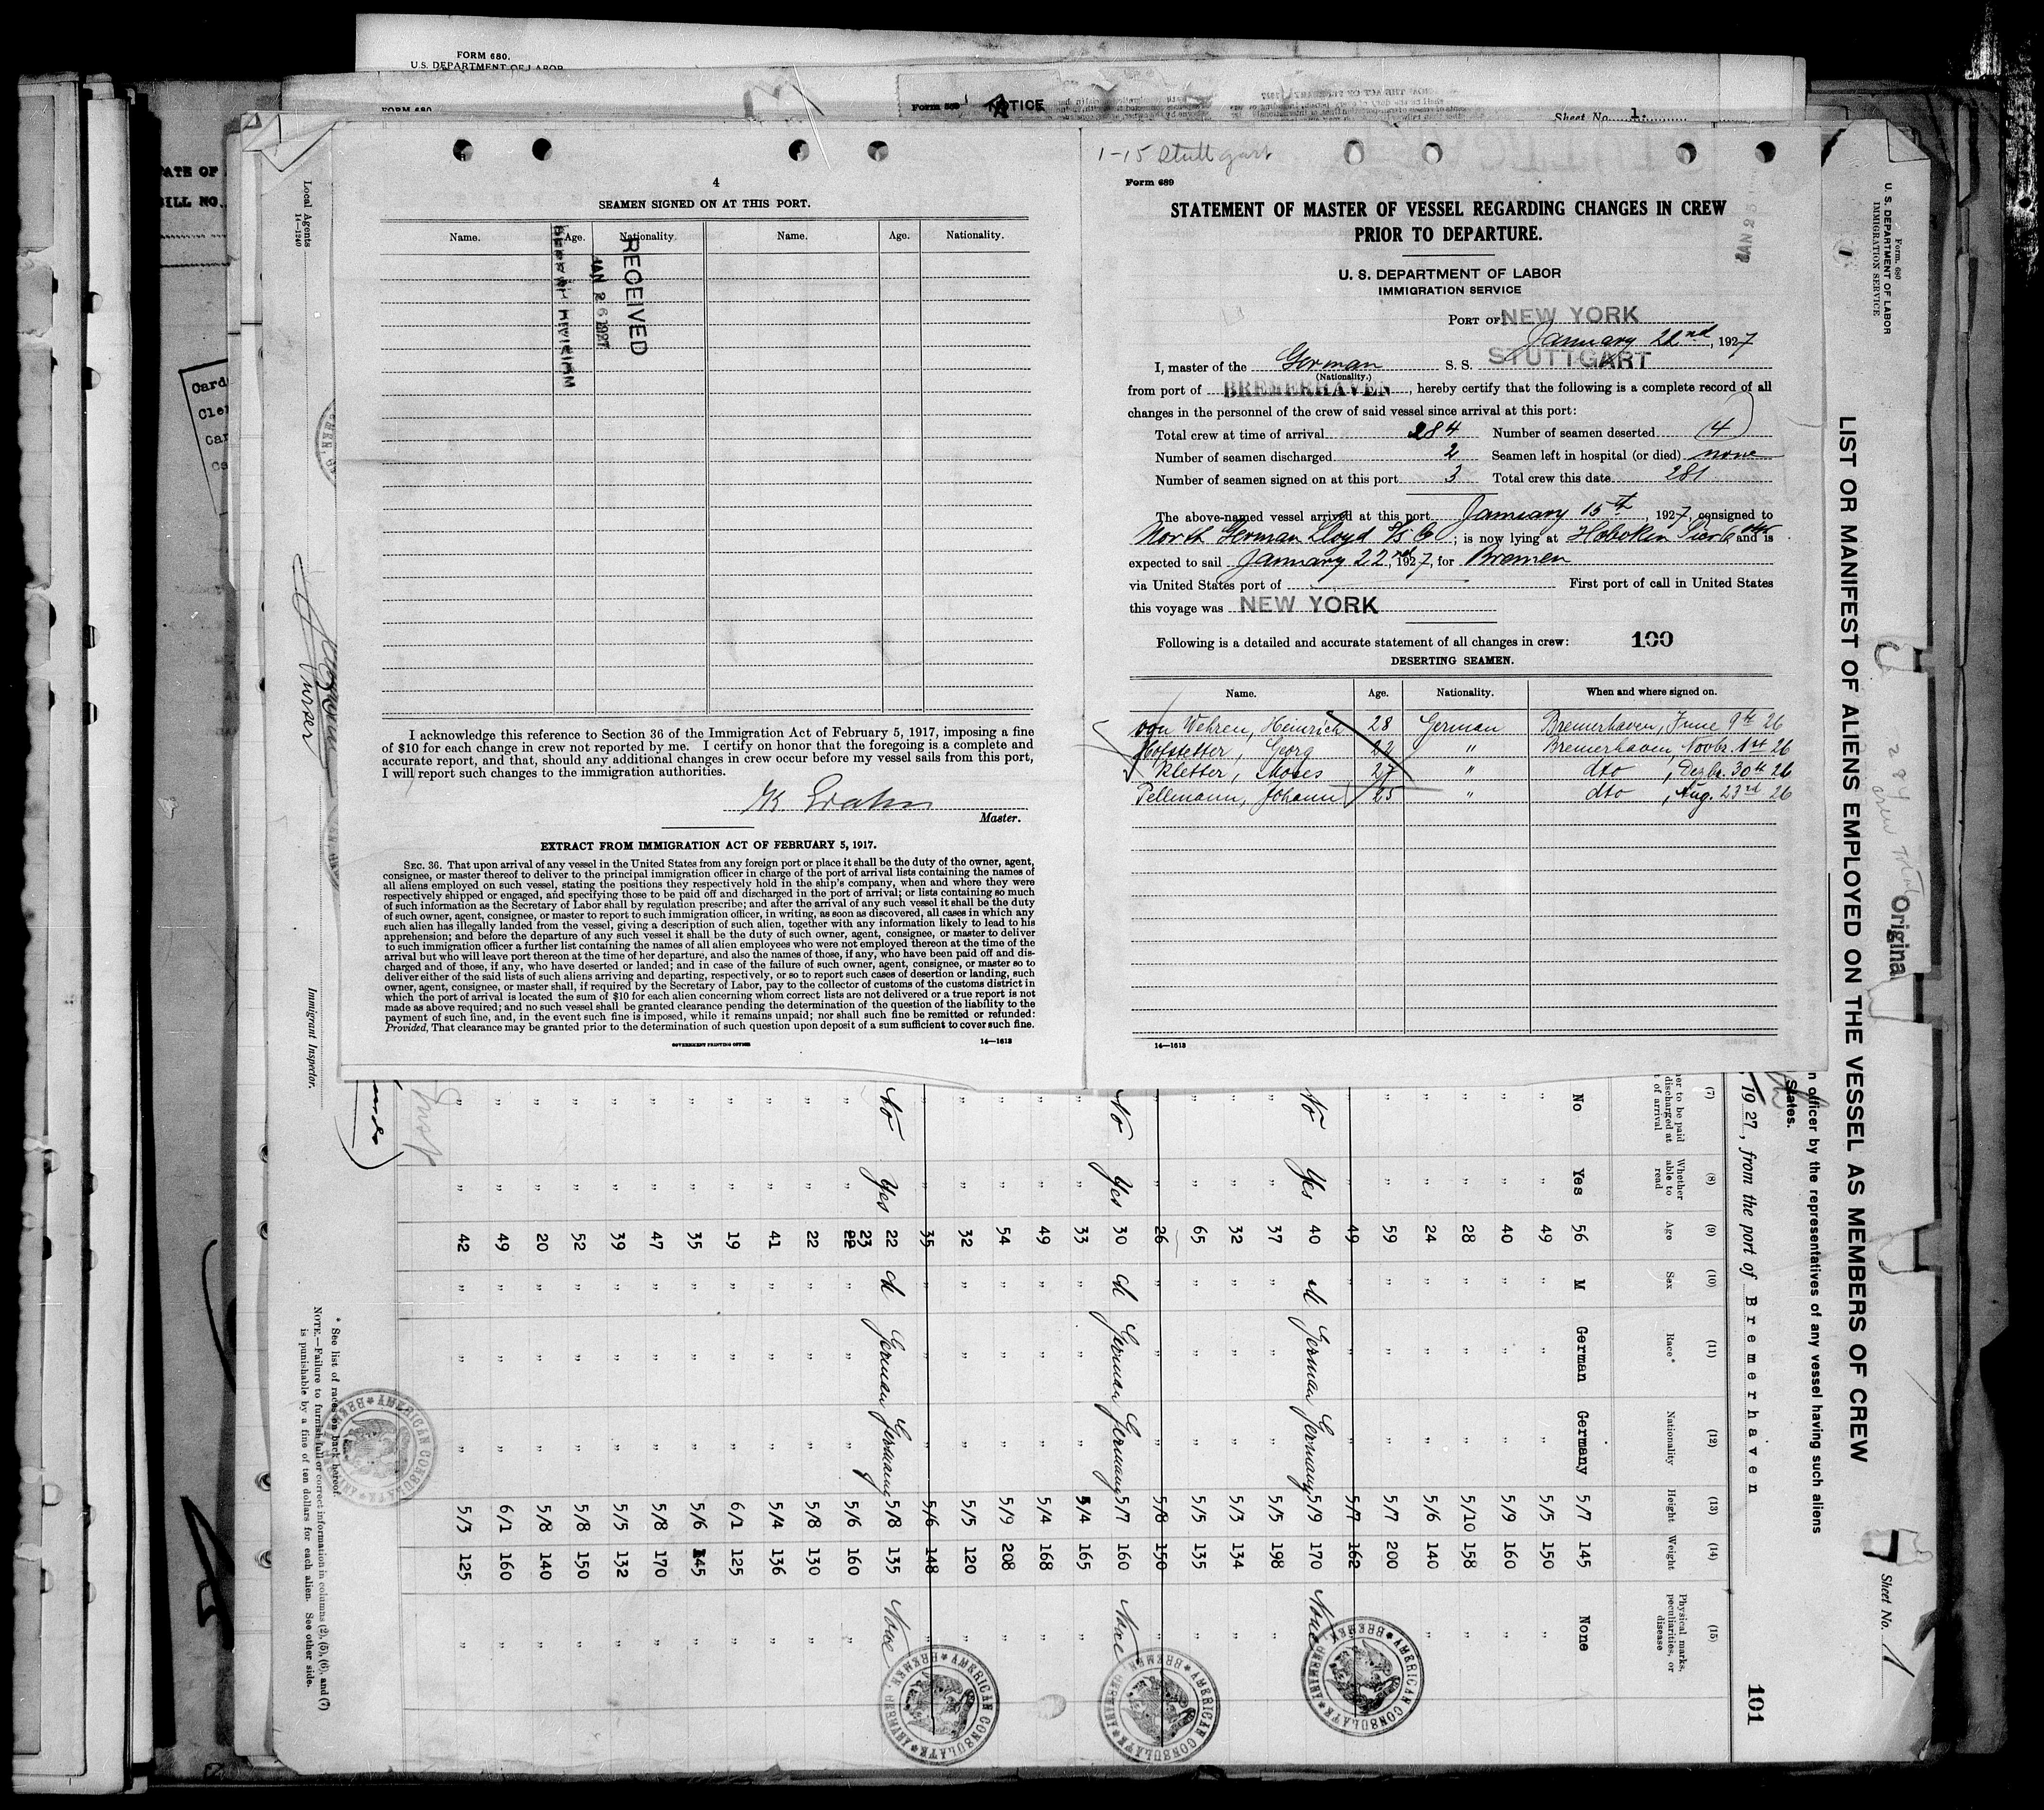 FORM 680.
U.S. DEPARTMENT OF LABOR
FORM 680
Form 689
NOTICE
Sheet No. 1
ATE OF
BILL NO.
Local Agents
14—1240
Purser
Immigrant Inspector.
4
SEAMEN SIGNED ON AT THIS PORT.
Name. Age. Nationality. Name. Age. Nationality.
RECEIVED
JAN 26 1927
I acknowledge this reference to Section 36 of the Immigration Act of February 5, 1917, imposing a fine
of $10 for each change in crew not reported by me. I certify on honor that the foregoing is a complete and
accurate report, and that, should any additional changes in crew occur before my vessel sails from this port,
I will report such changes to the immigration authorities.
Master.
EXTRACT FROM IMMIGRATION ACT OF FEBRUARY 5, 1917.
SEC. 36. That upon arrival of any vessel in the United States from any foreign port or place it shall be the duty of the owner, agent,
consignee, or master thereof to deliver to the principal immigration officer in charge of the port of arrival lists containing the names of
all aliens employed on such vessel, stating the positions they respectively hold in the ship's company, when and where they were
respectively shipped or engaged, and specifying those to be paid off and discharged in the port of arrival; or lists containing so much
of such information as the Secretary of Labor shall by regulation prescribe; and after the arrival of any such vessel it shall be the duty
of such owner, agent, consignee, or master to report to such immigration officer, in writing, as soon as discovered, all cases in which any
such alien has illegally landed from the vessel, giving a description of such alien, together with any information likely to lead to his
apprehension; and before the departure of any such vessel it shall be the duty of such owner, agent, consignee, or master to deliver
to such immigration officer a further list containing the names of all alien employees who were not employed thereon at the time of the
arrival but who will leave port thereon at the time of her departure, and also the names of those, if any, who have been paid off and dis-
charged and of those, if any, who have deserted or landed; and in case of the failure of such owner, agent, consignee, or master so to
deliver either of the said lists of such aliens arriving and departing, respectively, or so to report such cases of desertion or landing, such
owner, agent, consignee, or master shall, if required by the Secretary of Labor, pay to the collector of customs of the customs district in
which the port of arrival is located the sum of $10 for each alien concerning whom correct lists are not delivered or a true report is not
made as above required; and no such vessel shall be granted clearance pending the determination of the question of the liability to the
payment of such fine, and, in the event such fine is imposed, while it remains unpaid; nor shall such fine be remitted or refunded:
Provided, That clearance may be granted prior to the determination of such question upon deposit of a sum sufficient to cover such fine.
GOVERNMENT PRINTING OFFICE 14—1613
1-15 Stuttgart
Form 689
STATEMENT OF MASTER OF VESSEL REGARDING CHANGES IN CREW
PRIOR TO DEPARTURE.
JAN 25
U. S. DEPARTMENT OF LABOR
IMMIGRATION SERVICE
PORT OF NEW YORK
January 22nd, 1927
I, master of the German S. S. STUTTGART
(Nationality.)
from port of BREMERHAVEN, hereby certify that the following is a complete record of all
changes in the personnel of the crew of said vessel since arrival at this port:
Total crew at time of arrival 284 Number of seamen deserted (4)
Number of seamen discharged 2 Seamen left in hospital (or died) none
Number of seamen signed on at this port 3 Total crew this date 281
The above-named vessel arrived at this port January 15th, 1927, consigned to
North German Lloyd SS Co; is now lying at Hoboken Pier 6 and is
expected to sail January 22nd, 1927, for Bremen
via United States port of First port of call in United States
this voyage was NEW YORK
Following is a detailed and accurate statement of all changes in crew: 100
DESERTING SEAMEN.
Name. Age. Nationality. When and where signed on.
von Wehren, Heinrich 28 German Bremerhaven, June 9th 26
Hofstetter, Georg 22 " Bremerhaven, Novbr. 1st 26
Kletter, Moses 27 " dto, Dezbr. 30th 26
Pellmann, Johann 25 " dto, Aug. 23rd 26
14—1613
Form 680
U. S. DEPARTMENT OF LABOR
IMMIGRATION SERVICE
LIST OR MANIFEST OF ALIENS EMPLOYED ON THE VESSEL AS MEMBERS OF CREW
284
crew total
Original
Sheet No. 1
n officer by the representatives of any vessel having such aliens
States.
1927, from the port of Bremerhaven
101
(7) (8) (9) (10) (11) (12) (13) (14) (15)
her to be paid discharged at t of arrival Whether able to read Age Sex Race* Nationality Height Weight Physical marks, peculiarities, or disease
No Yes 56 M German Germany 5/7 145 None
" " 49 " " " 5/5 150 "
" " 40 " " " 5/9 160 "
" " 28 " " " 5/10 158 "
" " 24 " " " 5/6 140 "
" " 59 " " " 5/7 200
" " 49 " " " 5/7 162
No Yes 40 M German Germany 5/9 170 None
" " 37 " " " 5/5 198 "
" " 32 " " " 5/3 134 "
" " 65 " " " 5/5 135 "
" " 26 " " " 5/8 150 "
No Yes 30 M German Germany 5/7 160 None
" " 33 " " " 5/4 165 "
" " 49 " " " 5/4 168 "
" " 54 " " " 5/9 208 "
" " 32 " " " 5/5 120 "
" " 35 " " " 5/6 148 "
No Yes 22 M German Germany 5/8 135 None
" " 23 " " " 5/6 160 "
" " 22 " " " 5/8 130 "
" " 41 " " " 5/4 136 "
" " 19 " " " 6/1 125 "
" " 35 " " " 5/6 145 "
" " 47 " " " 5/8 170 "
" " 39 " " " 5/5 132 "
" " 52 " " " 5/8 150 "
" " 20 " " " 5/8 140 "
" " 49 " " " 6/1 160 "
" " 42 " " " 5/3 125 "
AMERICAN CONSULATE BREMEN, GERMANY
AMERICAN CONSULATE BREMEN, GERMANY
AMERICAN CONSULATE BREMEN, GERMANY
AMERICAN CONSULATE BREMEN, GERMANY
* See list of races on back hereof.
NOTE.—Failure to furnish full or correct information in columns (2), (5), (6), and (7)
is punishable by a fine of ten dollars for each alien. See other side.